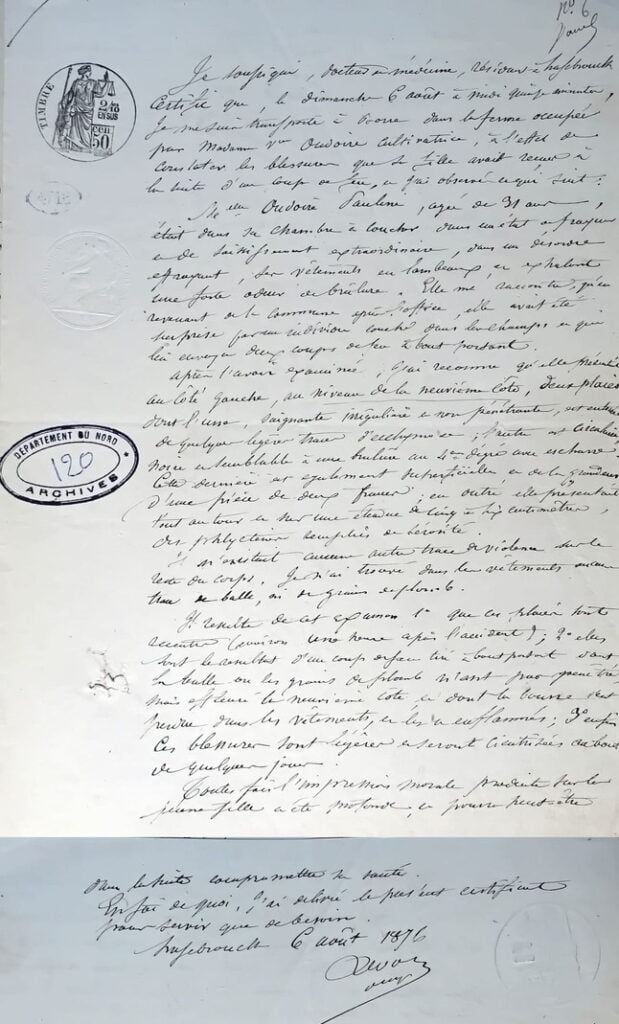 No. 6
TIMBRE
2/10
EN SUS
50
cen
Je soussigné, docteur en médecine, résidant à hazebrouck
Certifie que, le dimanche 6 août à midi quinze minutes,
Je me suis transporté à Borre dans la ferme occupée
par Madame Vve Oudoire Cultivatrice, à l'effet de
constater les blessures que sa fille avait reçues à
la suite d'un coup de feu, et j'ai observé ce qui suit :
Oudoire Pauline, agée de 31 ans,
était dans sa chambre à coucher dans un état de frayeur
et de saisissement extraordinaire, dans un désordre
effrayant, ses vêtements en lambeaux et exhalant
une forte odeur de brûlure. Elle me raconta qu'en
revenant de la commune après l'office, elle avait été
surprise par un individu couché dans les champs et qui
lui envoya deux coups de feu à bout portant.
Après l'avoir examinée, j'ai reconnu qu'elle présentait
au côté gauche, au niveau de la neuvième côte, deux plaies
dont l'une, saignante irrégulière et non pénétrante, est entourée
de quelques légères traces d'ecchymoses ; l'autre est circulaire,
noire et semblable à une brûlure au 4me degré avec eschare
Cette dernière est également superficielle et de la grandeur
d'une pièce de deux francs ; en outre elle présentait
tout autour et sur une étendue de cinq à six centimètres,
des phlyctènes remplies de sérosité.
Il n'existait aucune autre trace de violence sur le
reste du corps. Je n'ai trouvé dans les vêtements aucune
trace de balle, ni de grains de plomb.
Il résulte de cet examen 1° que ces plaies sont
récentes (environ une heure après l'accident) ; 2° elles
sont le résultat d'un coup de feu tiré à bout portant dont
la balle ou les grains de plomb n'ont pas pénétré
mais effleuré la neuvième côte, et dont la bourre s'est
perdue dans les vêtements, et les a enflammés ; 3° enfin
Ces blessures sont légères et seront cicatrisées au bout
de quelques jours.
Toutes fois l'impression morale produite sur la
jeune fille a été profonde, et pourra peut-être
dans la suite compromettre sa santé.
En foi de quoi, j'ai délivré le présent certificat
pour servir que de besoin.
Hazebrouck 6 août 1876
DEPARTEMENT DU NORD
120
ARCHIVES